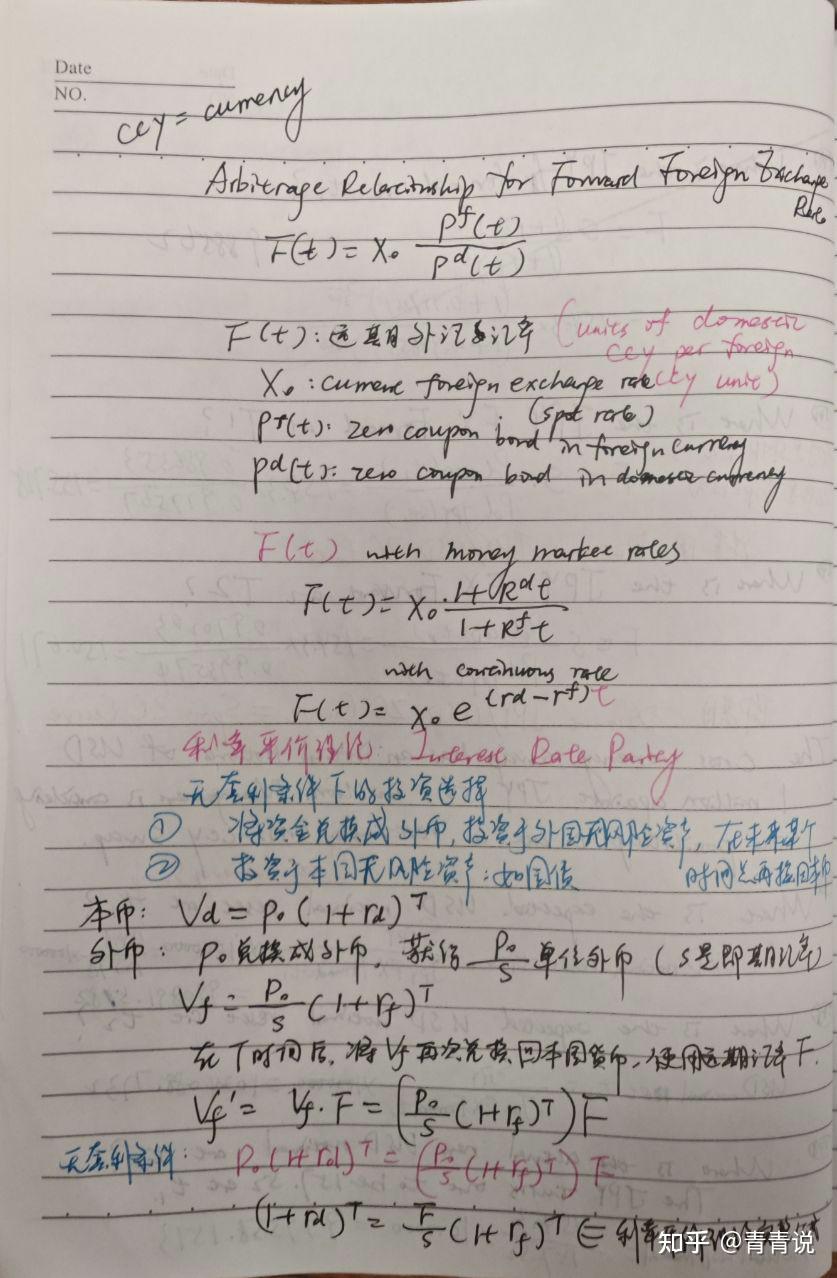 Date
NO.
ccy = currency
Arbitrage Relationship for Forward Foreign Exchange Rate
F(t) = X₀ P^f(t) / P^d(t)
F(t): 远期外汇汇率 (units of domestic
ccy per foreign
X₀: current foreign exchange rate ccy unit)
(spot rate)
P^f(t): zero coupon bond in foreign currency
P^d(t): zero coupon bond in domestic currency
F(t) with money market rates
F(t) = X₀ · (1+R^d t) / (1+R^f t)
with continuous rate
F(t) = X₀ e^(rd-rf)t
利率平价理论: Interest Rate Parity
无套利条件下的投资选择
① 将资金兑换成外币,投资于外国无风险资产,在未来某个
时间点再换回本币
② 投资于本国无风险资产:如国债
本币: Vd = P₀(1+rd)^T
外币: P₀兑换成外币,获得 P₀/S 单位外币 (S是即期汇率)
Vf = P₀/S (1+rf)^T
在T时间后,将Vf再次兑换回本国货币,使用远期汇率F.
Vf' = Vf · F = (P₀/S (1+rf)^T) F
无套利条件: P₀(1+rd)^T = (P₀/S (1+rf)^T) F
(1+rd)^T = F/S (1+rf)^T 利率平价
知乎 @青青说